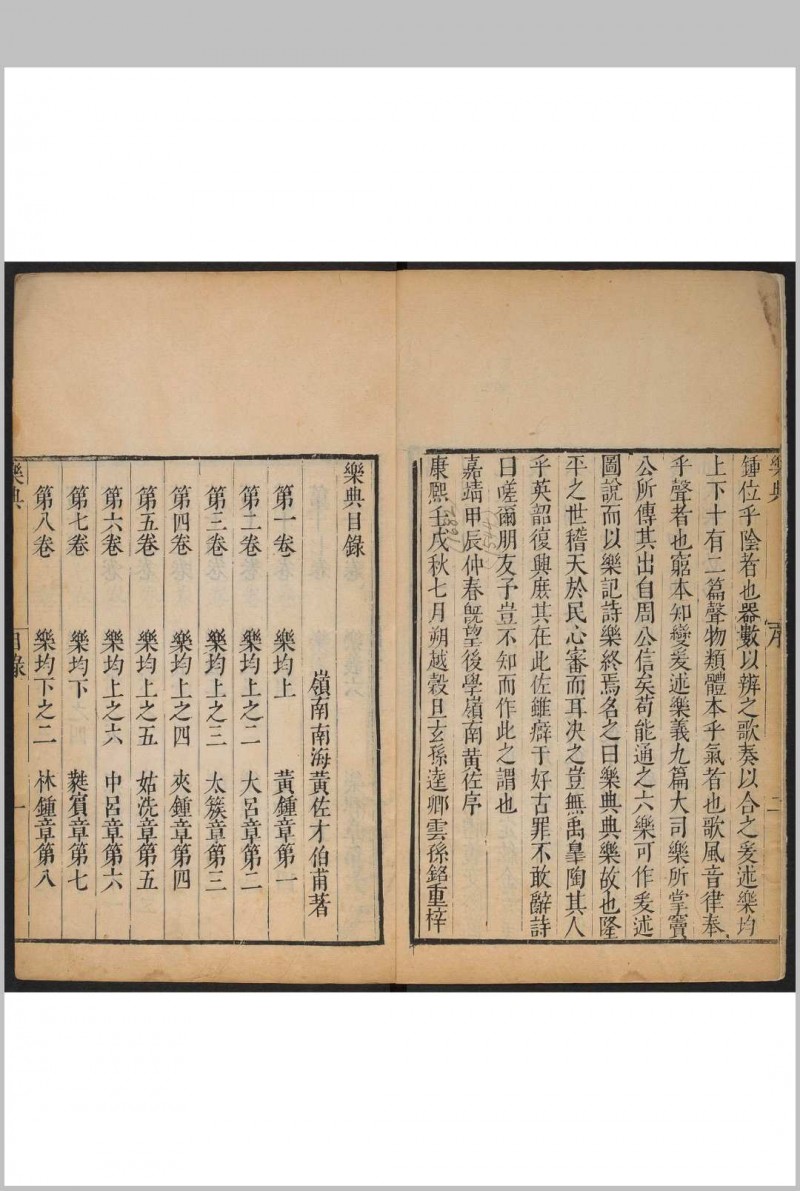 樂典
序
二
鍾位乎陰者也器數以辨之歌奏以合之爰述樂均
上下十有二篇聲物類體本乎氣者也歌風音律奉
乎聲者也窮本知變爰述樂義九篇大司樂所掌竇
公所傳其出自周公信矣苟能通之六樂可作爰述
圖說而以樂記詩樂終焉名之曰樂典典樂故也隆
平之世稽天於民心審而耳决之豈無禹皐陶其人
乎英韶復興庶其在此佐雖癖于好古罪不敢辭詩
曰嗟爾朋友予豈不知而作此之謂也
嘉靖甲辰仲春旣望後學嶺南黄佐序
康熙壬戌秋七月朔越穀旦玄孫逵卿雲孫銘重梓
樂典目錄
嶺南南海黃佐才伯甫著
第一卷 樂均上 黃鍾章第一
第二卷 樂均上之二 大呂章第二
第三卷 樂均上之三 太簇章第三
第四卷 樂均上之四 夾鍾章第四
第五卷 樂均上之五 姑洗章第五
第六卷 樂均上之六 中呂章第六
第七卷 樂均下 蕤賓章第七
第八卷 樂均下之二 林鍾章第八
樂典 目錄 一